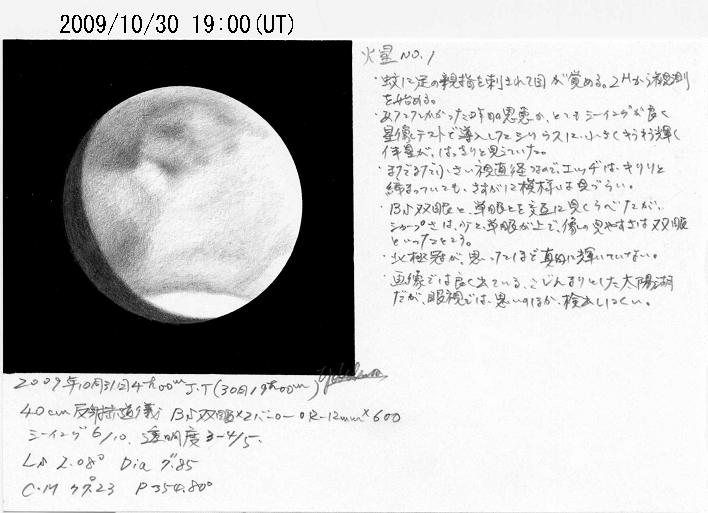 2009/10/30 19:00(UT)
火星 NO.1
・蚊に足の親指を刺されて目が覚める。2Hから観測
を始める。
かかった昨日の思惑か、とてもシーイングが良く
星像テストで導入したシリウスに、小さくキラキラ輝く
伴星が、はっきりと見えていた。
・まだまだ小さい視直径なので、エッヂは、キリリと
締まっていても、さすがに模様は見づらい。
・Bn双眼と、単眼とを交互に見くらべたが、
シャープさは、少々、単眼が上で、像の見やすさは双眼
といったところ。
・北極冠が、思ったほど真白に輝いていない。
・画像では良く出ている、こじんまりとした太陽湖
だが、眼視では、思いのほか、検出しにくい。
2009年10月31日4h00m J.T(30日19h00m)
40cm反射赤道儀 Bn双眼×2バロー OR-12mm ×600
シーイング6/10、透明度3-4/5.
Ls 2.08° Dia 7.85
C.M 47.23 P 354.80°